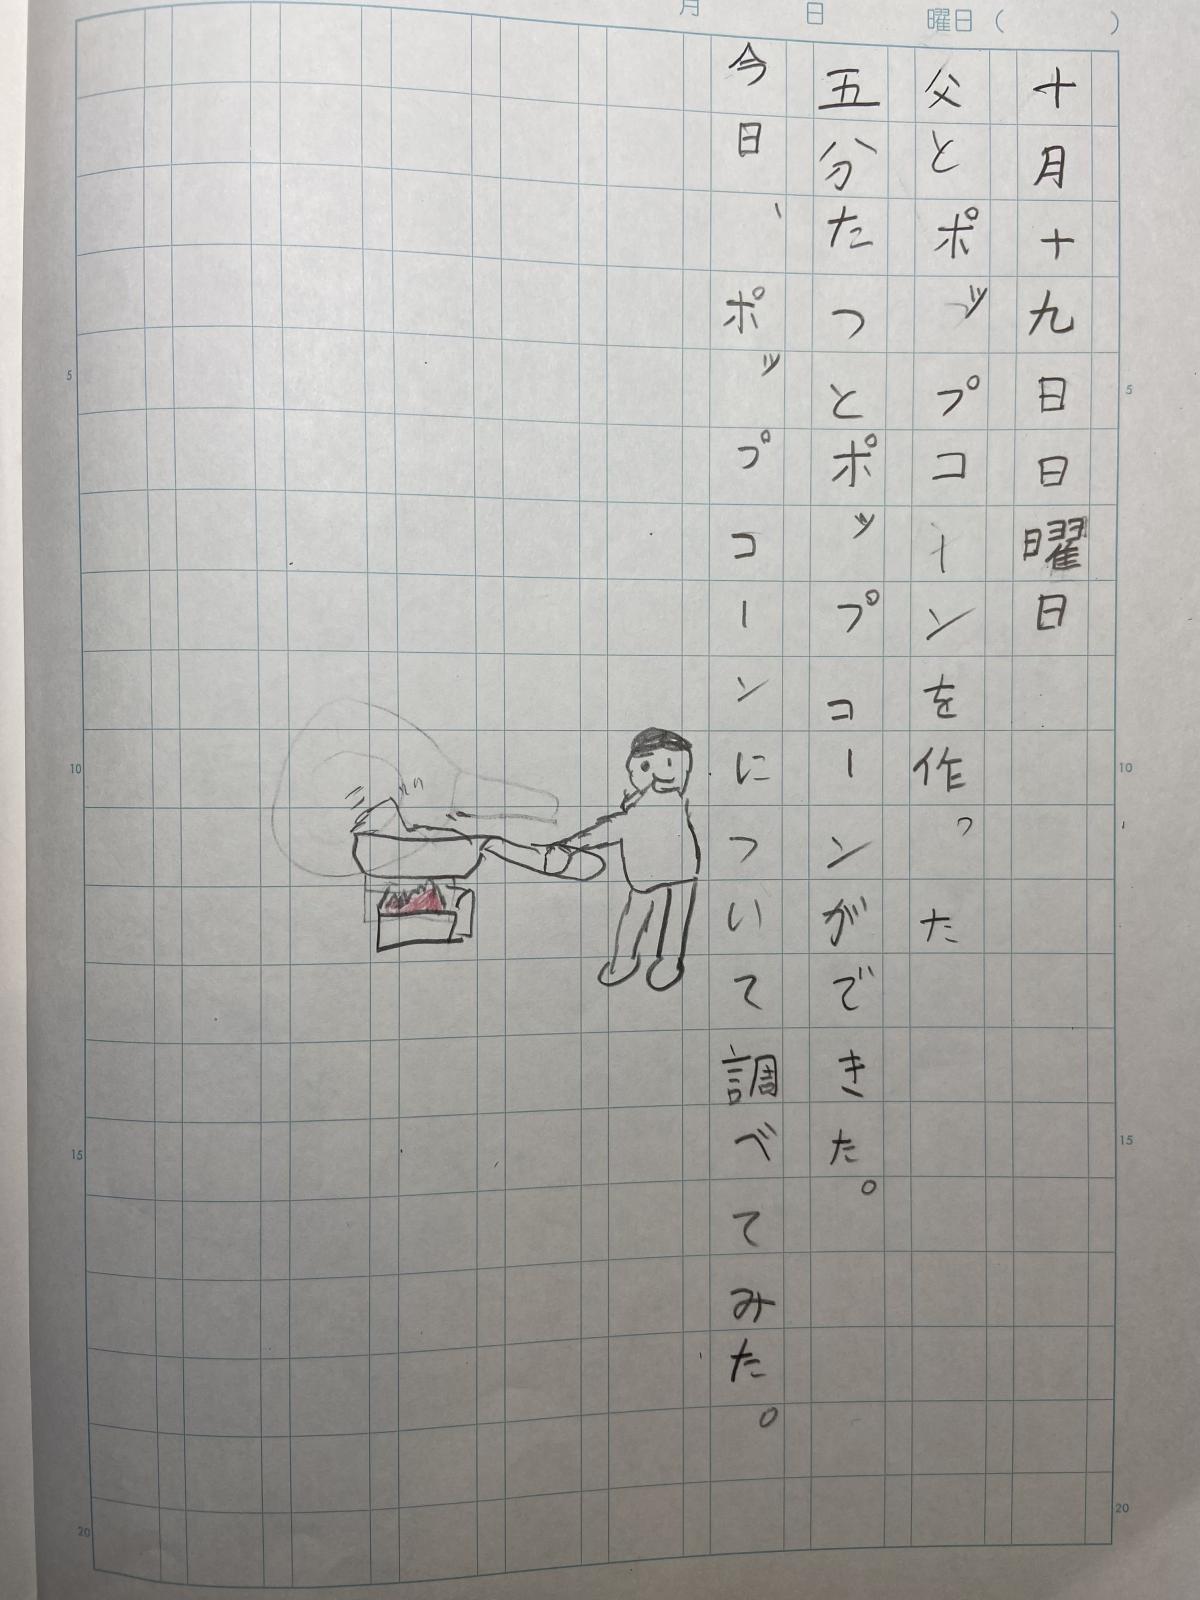 月 日 曜日（ ）
十月十九日日曜日
父とポップコーンを作った
五分たつとポップコーンができた。
今日、ポップコーンについて調べてみた。
5
10
15
20
5
10
15
20